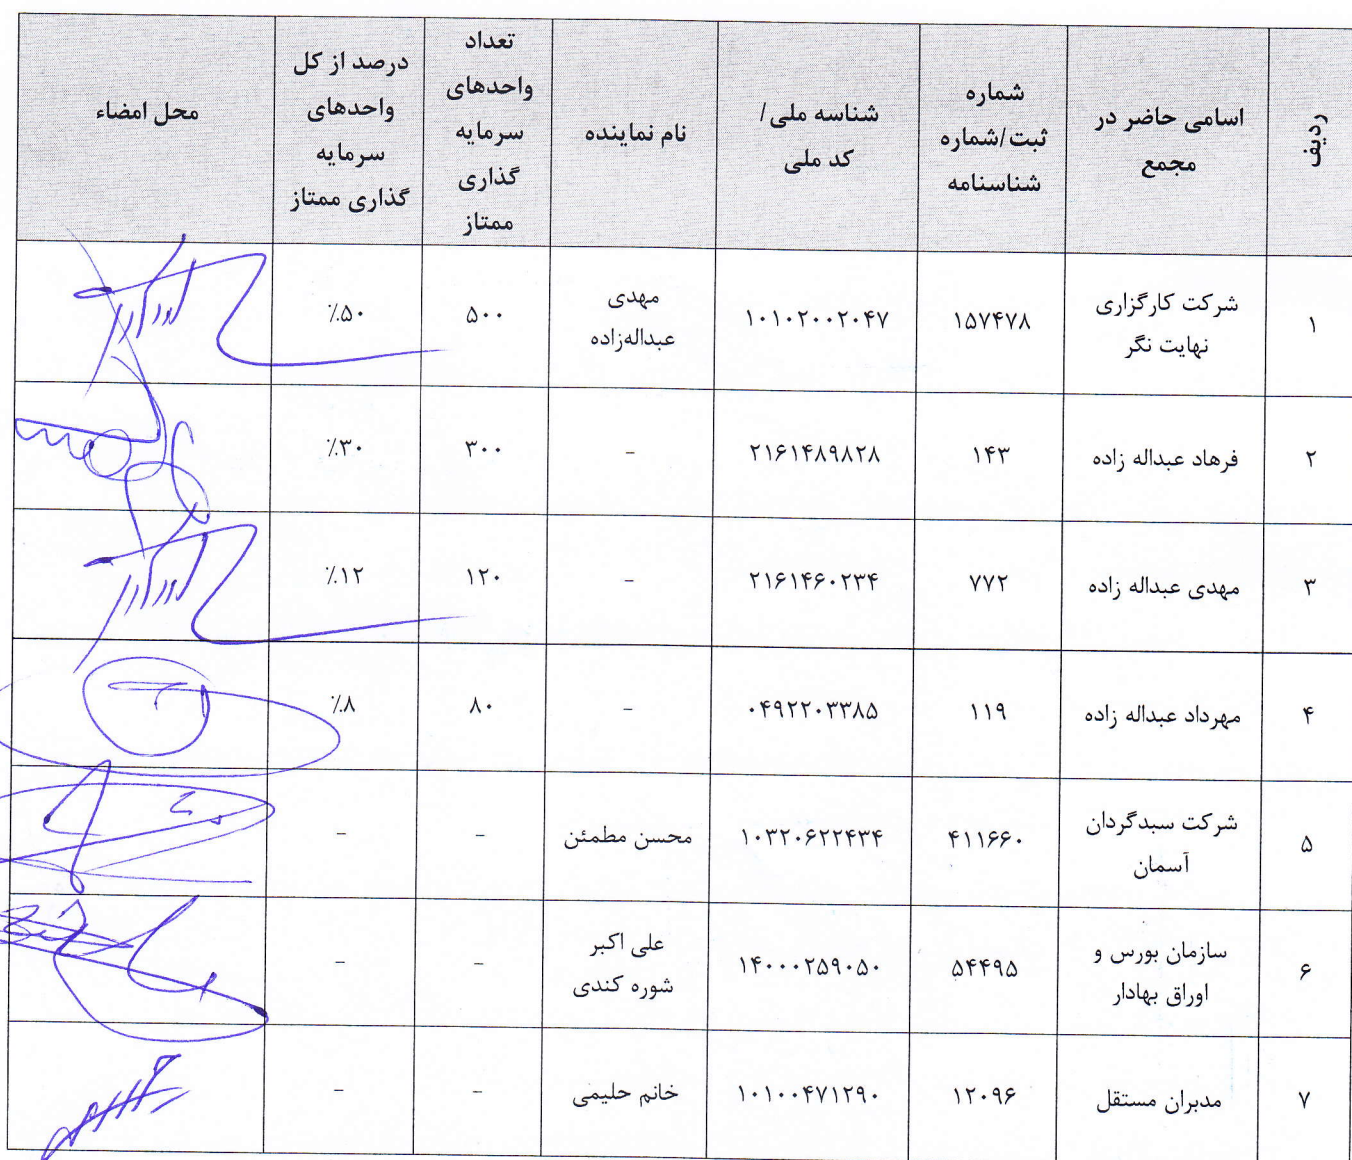 ردیف
اسامی حاضر در
مجمع
شماره
ثبت/شماره
شناسنامه
شناسه ملی/
کد ملی
نام نماینده
تعداد
واحدهای
سرمایه
گذاری
ممتاز
درصد از کل
واحدهای
سرمایه
گذاری ممتاز
محل امضاء
۱
شرکت کارگزاری
نهایت نگر
۱۵۷۴۷۸
۱۰۱۰۲۰۰۲۰۴۷
مهدی
عبداله‌زاده
۵۰۰
٪۵۰
۲
فرهاد عبداله زاده
۱۴۳
۲۱۶۱۴۸۹۸۲۸
-
۳۰۰
٪۳۰
۳
مهدی عبداله زاده
۷۷۲
۲۱۶۱۴۶۰۲۳۴
-
۱۲۰
٪۱۲
۴
مهرداد عبداله زاده
۱۱۹
۰۴۹۲۲۰۳۳۸۵
-
۸۰
٪۸
۵
شرکت سبدگردان
آسمان
۴۱۱۶۶۰
۱۰۳۲۰۶۲۲۴۳۴
محسن مطمئن
-
-
۶
سازمان بورس و
اوراق بهادار
۵۴۴۹۵
۱۴۰۰۰۲۵۹۰۵۰
علی اکبر
شوره کندی
-
-
۷
مدبران مستقل
۱۲۰۹۶
۱۰۱۰۰۴۷۱۲۹۰
خانم حلیمی
-
-